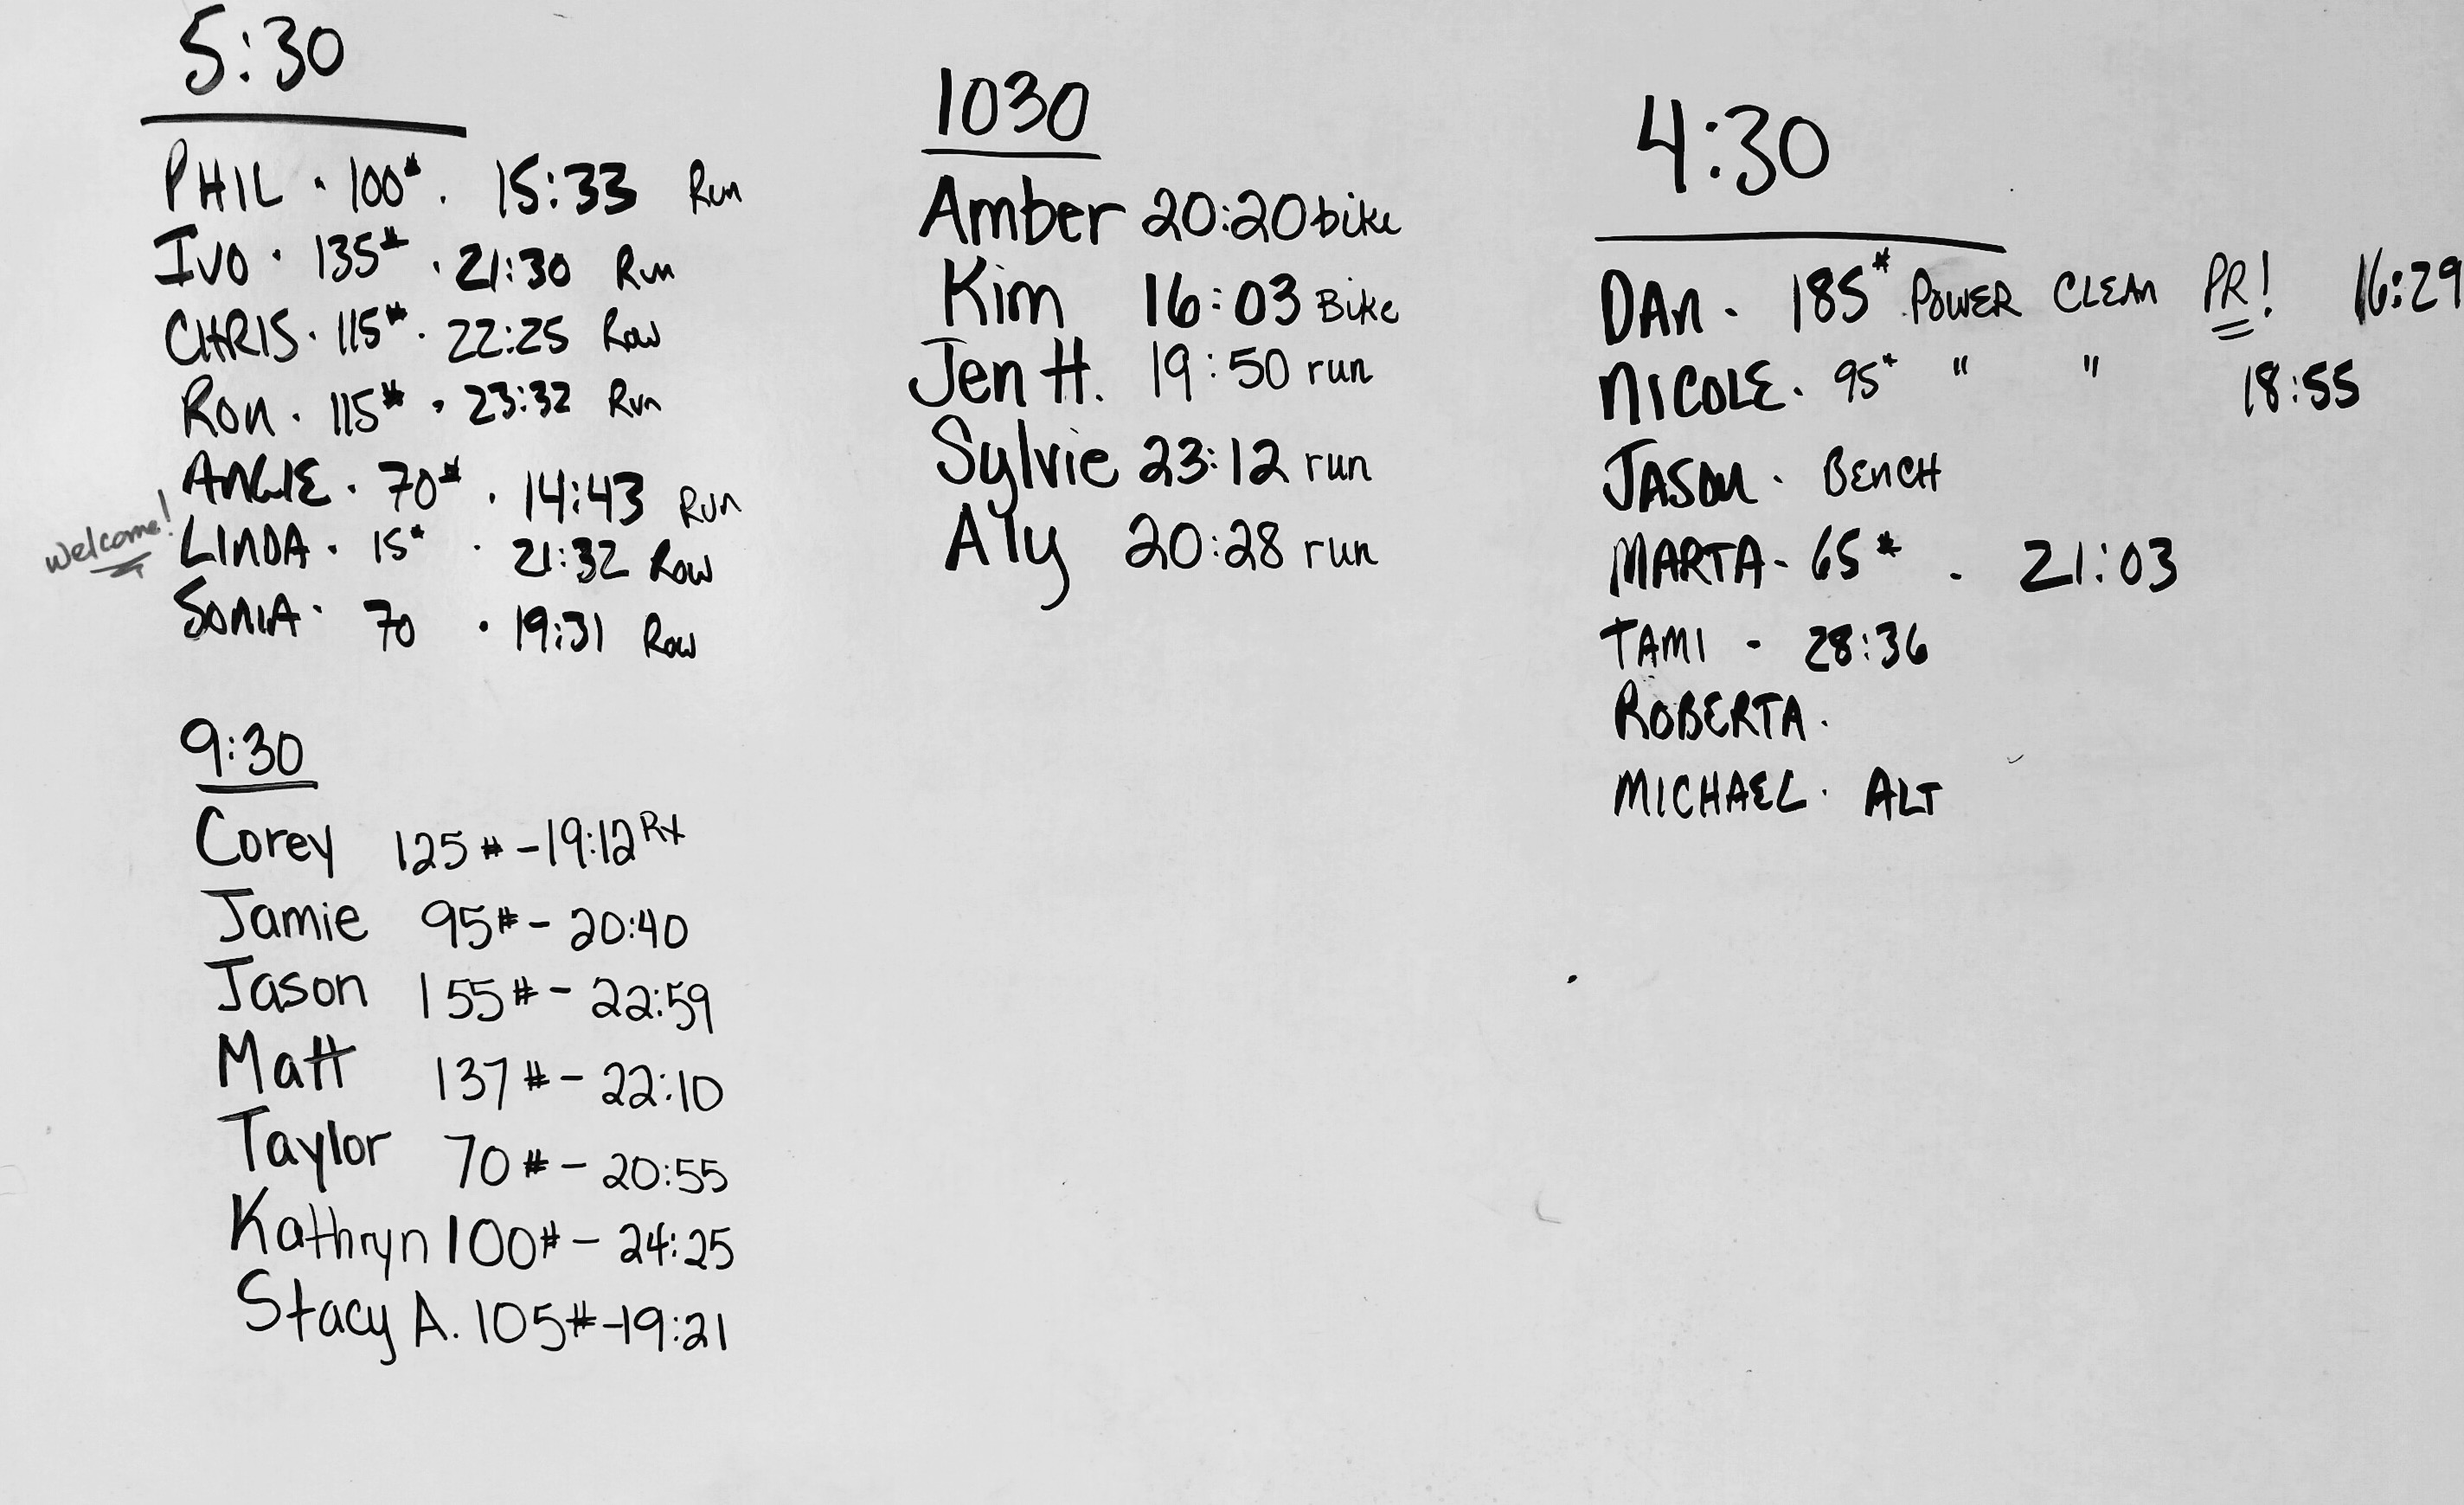 5:30
PHIL · 100# · 15:33 Run
IVO · 135# · 21:30 Run
CHRIS · 115# · 22:25 Row
RON · 115# · 23:32 Run
ANGIE · 70# · 14:43 Run
Welcome! LINDA · 15# · 21:32 Row
SONIA · 70 · 19:31 Row
9:30
Corey 125# - 19:12 Rx
Jamie 95# - 20:40
Jason 155# - 22:59
Matt 137# - 22:10
Taylor 70# - 20:55
Kathryn 100# - 24:25
Stacy A. 105# - 19:21
1030
Amber 20:20 bike
Kim 16:03 Bike
Jen H. 19:50 run
Sylvie 23:12 run
Aly 20:28 run
4:30
DAN · 185# POWER CLEAN PR! 16:29
NICOLE · 95# " " 18:55
JASON · BENCH
MARTA - 65# . 21:03
TAMI - 28:36
ROBERTA ·
MICHAEL · ALT